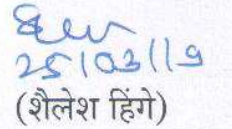 25/03/19
(शैलेश हिंगे)